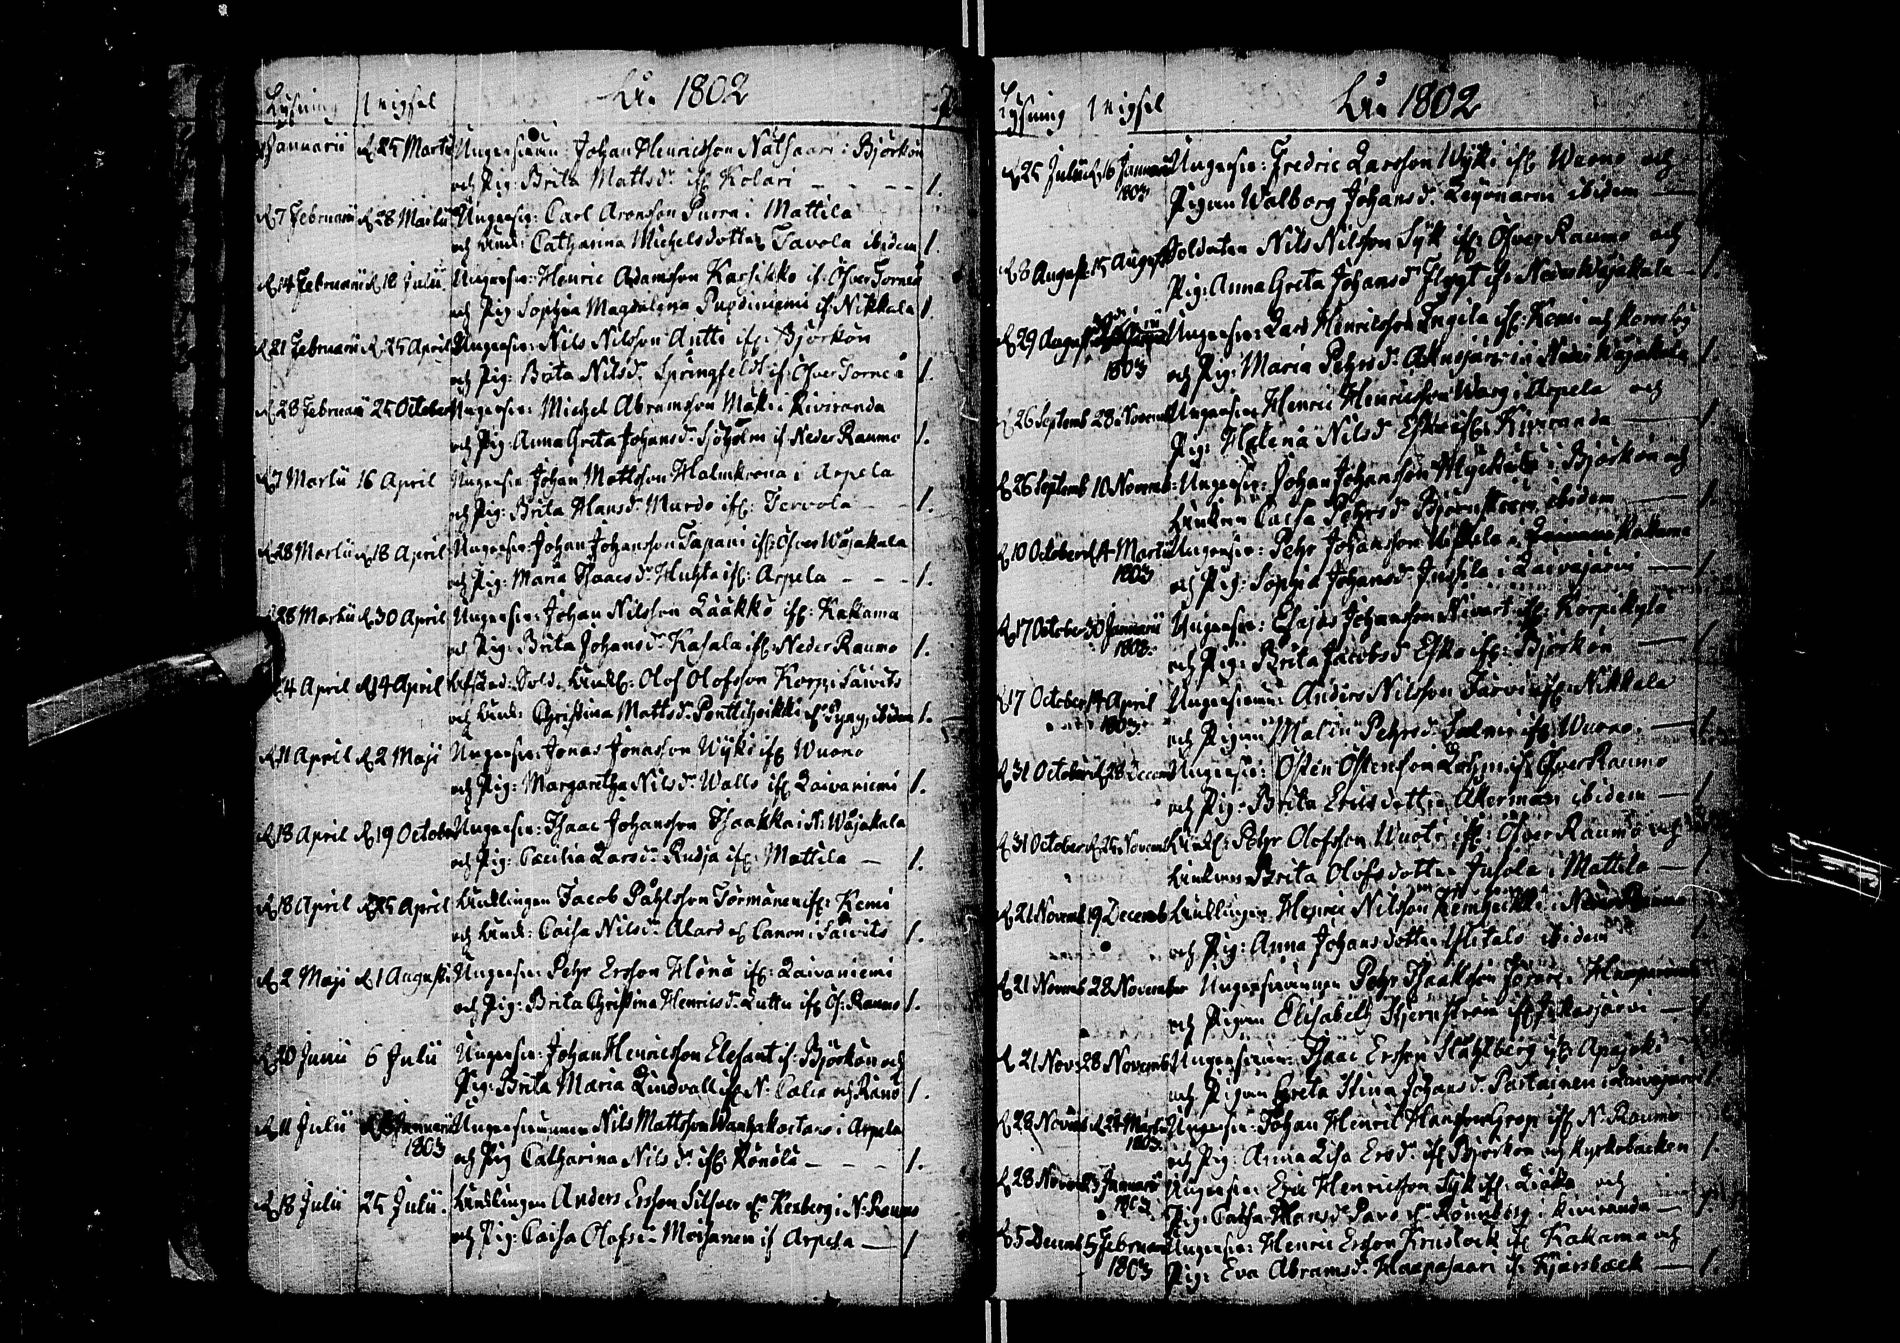 Lysning Vigsel År 1802
Januarii d. 25 Martii Ungersven: Johan Henricsson Nätsaari i Björkön
och Pig: Brita Mattsdr. ifr. Kolari 1.
d. 7 Februarii d. 28 Martii Ungersv: Carl Aronsson Purra i Mattila
och Enk: Catharina Michelsdotter Tavola ibidem 1.
d. 14 Februarii d. 18 Julii Ungersv: Henric Adamsson Karhikko if. Öfver Torneå
och Pig Sophia Magdalena if. Nikkala 1.
d. 21 Februarii d. 25 April Ungersv: Nils Nilsson Antti ifr. Björkön
och Pig: Brita Nilsdr. Springfeldt if. Öfver Torneå 1.
d. 28 Februarii 25 October Ungersv: Michel Abramsson Mäki i Kiviranda
och Pig: Anna Greta Johansdr. Sjöholm if. Neder Raumo 1.
d. 7 Martii 16 April Ungersv: Johan Mattsson Halmkrona i Arpela
och Pig: Brita Hansdr. Murdo ifr. Tervola 1.
d. 28 Martii d. 18 April Ungersv: Johan Johansson Tapani ifr. Öfver Wojakala
och Pig: Maria Isaacsdr. Huhta ifr. Arpela 1.
d. 28 Martii d. 30 April Ungersv: Johan Nilsson Lääkkö ifr. Kakama
och Pig: Brita Johansdr. Kasala ifr. Neder Raumo 1.
d. 4 April d. 14 April Afsked: Sold. Enkl. Olof Olofsson Korpi i Säivits
och Enk: Christina Mattsdr. ibidem 1.
d. 11 April d. 2 Maji Ungersv: Jonas Jonasson Wyki ifr. Wuono
och Pig: Margaretha Nilsdr. Walls ifr. Laivaniemi 1.
d. 18 April d. 19 October Ungersv: Isaac Johansson Isaakka i N: Wojakala
och Pig: Caecilia Larsdr. Rudja ifr. Mattila 1.
d. 18 April d. 25 April Enklingen Jacob Påhlsson Törmänen ifr. Kemi
och Enk: Caisa Nilsdr. Alard el. Canon i Säivits 1.
d. 2 Maji d. 1 Augusti Ungersv: Pehr Ersson Hönö ifr. Laivaniemi
och Pig: Brita Christina Henricsdr. Luttu ifr. Öf: Raumo 1.
d. 20 Junii 6 Julii Ungersv: Johan Henricsson Elefant if. Björkön och
Pig: Brita Maria Lindvall ifr. N: Calix och Rånö 1.
d. 11 Julii Januarii 1803 Ungersvennen Nils Mattsson i Arpela
och Pig Catharina Nilsdr. ifr. 1.
d. 18 Julii 25 Julii Enklingen Anders Ersson Silfver el. i N: Raumo
och Pig: Caisa Olofsdr. Moijanen if Arpela 1
Lysning Vigsel År 1802
d. 25 Julii d. 16 Januarii 1803 Ungersv: Fredric Larsson Wyki ifr. Wuono och
Pigan Walborg Johansdr. ibidem
d. 8 August 15 August Soldaten Nils Nilsson Syk ifr. Öfver Raumo och
Pig: Anna Greta Johansdr Flygt ifr. Neder Wojakala 1.
d. 29 August 1803 Ungersv: Lars Henricsson Ingila ifr. Kemi och
och Pig: Maria Pehrsdr. i Neder Wojakala 1.
d. 26 Septemb 28 Novemb Ungersv: Henric Henricsson Warg i Arpela och
Pig: Helena Nilsdr Esko ifr. Kiviranda 1.
d. 26 Septemb 10 Novemb: Ungersv: Johan Johansson i Björkön och
Enkan Caisa Pehrsdr. ibidem 1.
d. 10 October d. 4 Martii 1803 Ungersv: Pehr Johansson i Kakama
och Pig: Sophia Johansdr. Jussila i Laivajärvi 1
d. 17 October 30 Januarii 1803. Ungersv: Esajas Johansson ifr. Korpikylä
och Pig: Brita Jacobsdr Esko ifr. Björkön
d. 17 October 14 April 1803 Ungersvennen Anders Nilsson Järvi ifr. Nikkala
och Pigan Malin Pehrsdr. ifr. Wuono 1.
d. 31 October d. 28 Decemb Ungersv: Östen Östensson if. Öfver Raumo
och Pig: Brita Ericsdotter Åkerman ibidem 1
d. 31 October d. 25 Novemb Enkl: Pehr Olofsson ifr: Öfver Raumo och
Enkan Brita Olofsdotter Jusola i Mattila 1
d. 21 Novemb 19 Decemb Enklingen Henric Nilsson i Neder Raumo
och Pig: Anna Johansdotter ibidem 1
d. 21 Novemb 28 November Ungersvennen Pehr Isaksson
och Pigan Elisabeth Stjernström ifr. Jukasjärvi 1
d. 21 Nov: 28 Novemb Ungersvennen: Isaac Ersson Ståhlberg ifr. Apajoki
och Pigan Greta Stina Johansdr. i Laivajärvi 1.
d. 28 Novemb d. 24 Martii 1803. Ungersv: Johan Henric Hansson Grop ifr. N: Raumo
och Pig: Anna Lisa Ersdr. ifr Björkön och Kyrkobacken 1.
d. 28 Novemb 23 Januarii 1803 Ungersv: Eric Henricsson Syk ifr. och
Pig: Caisa Hansdr i Kiviranda
d. 5 Decemb 5 Februari 1803 Ungersv: Henric Ersson if. Kakama och
Pig: Eva Abramsdr. Haapasaari if. 1.